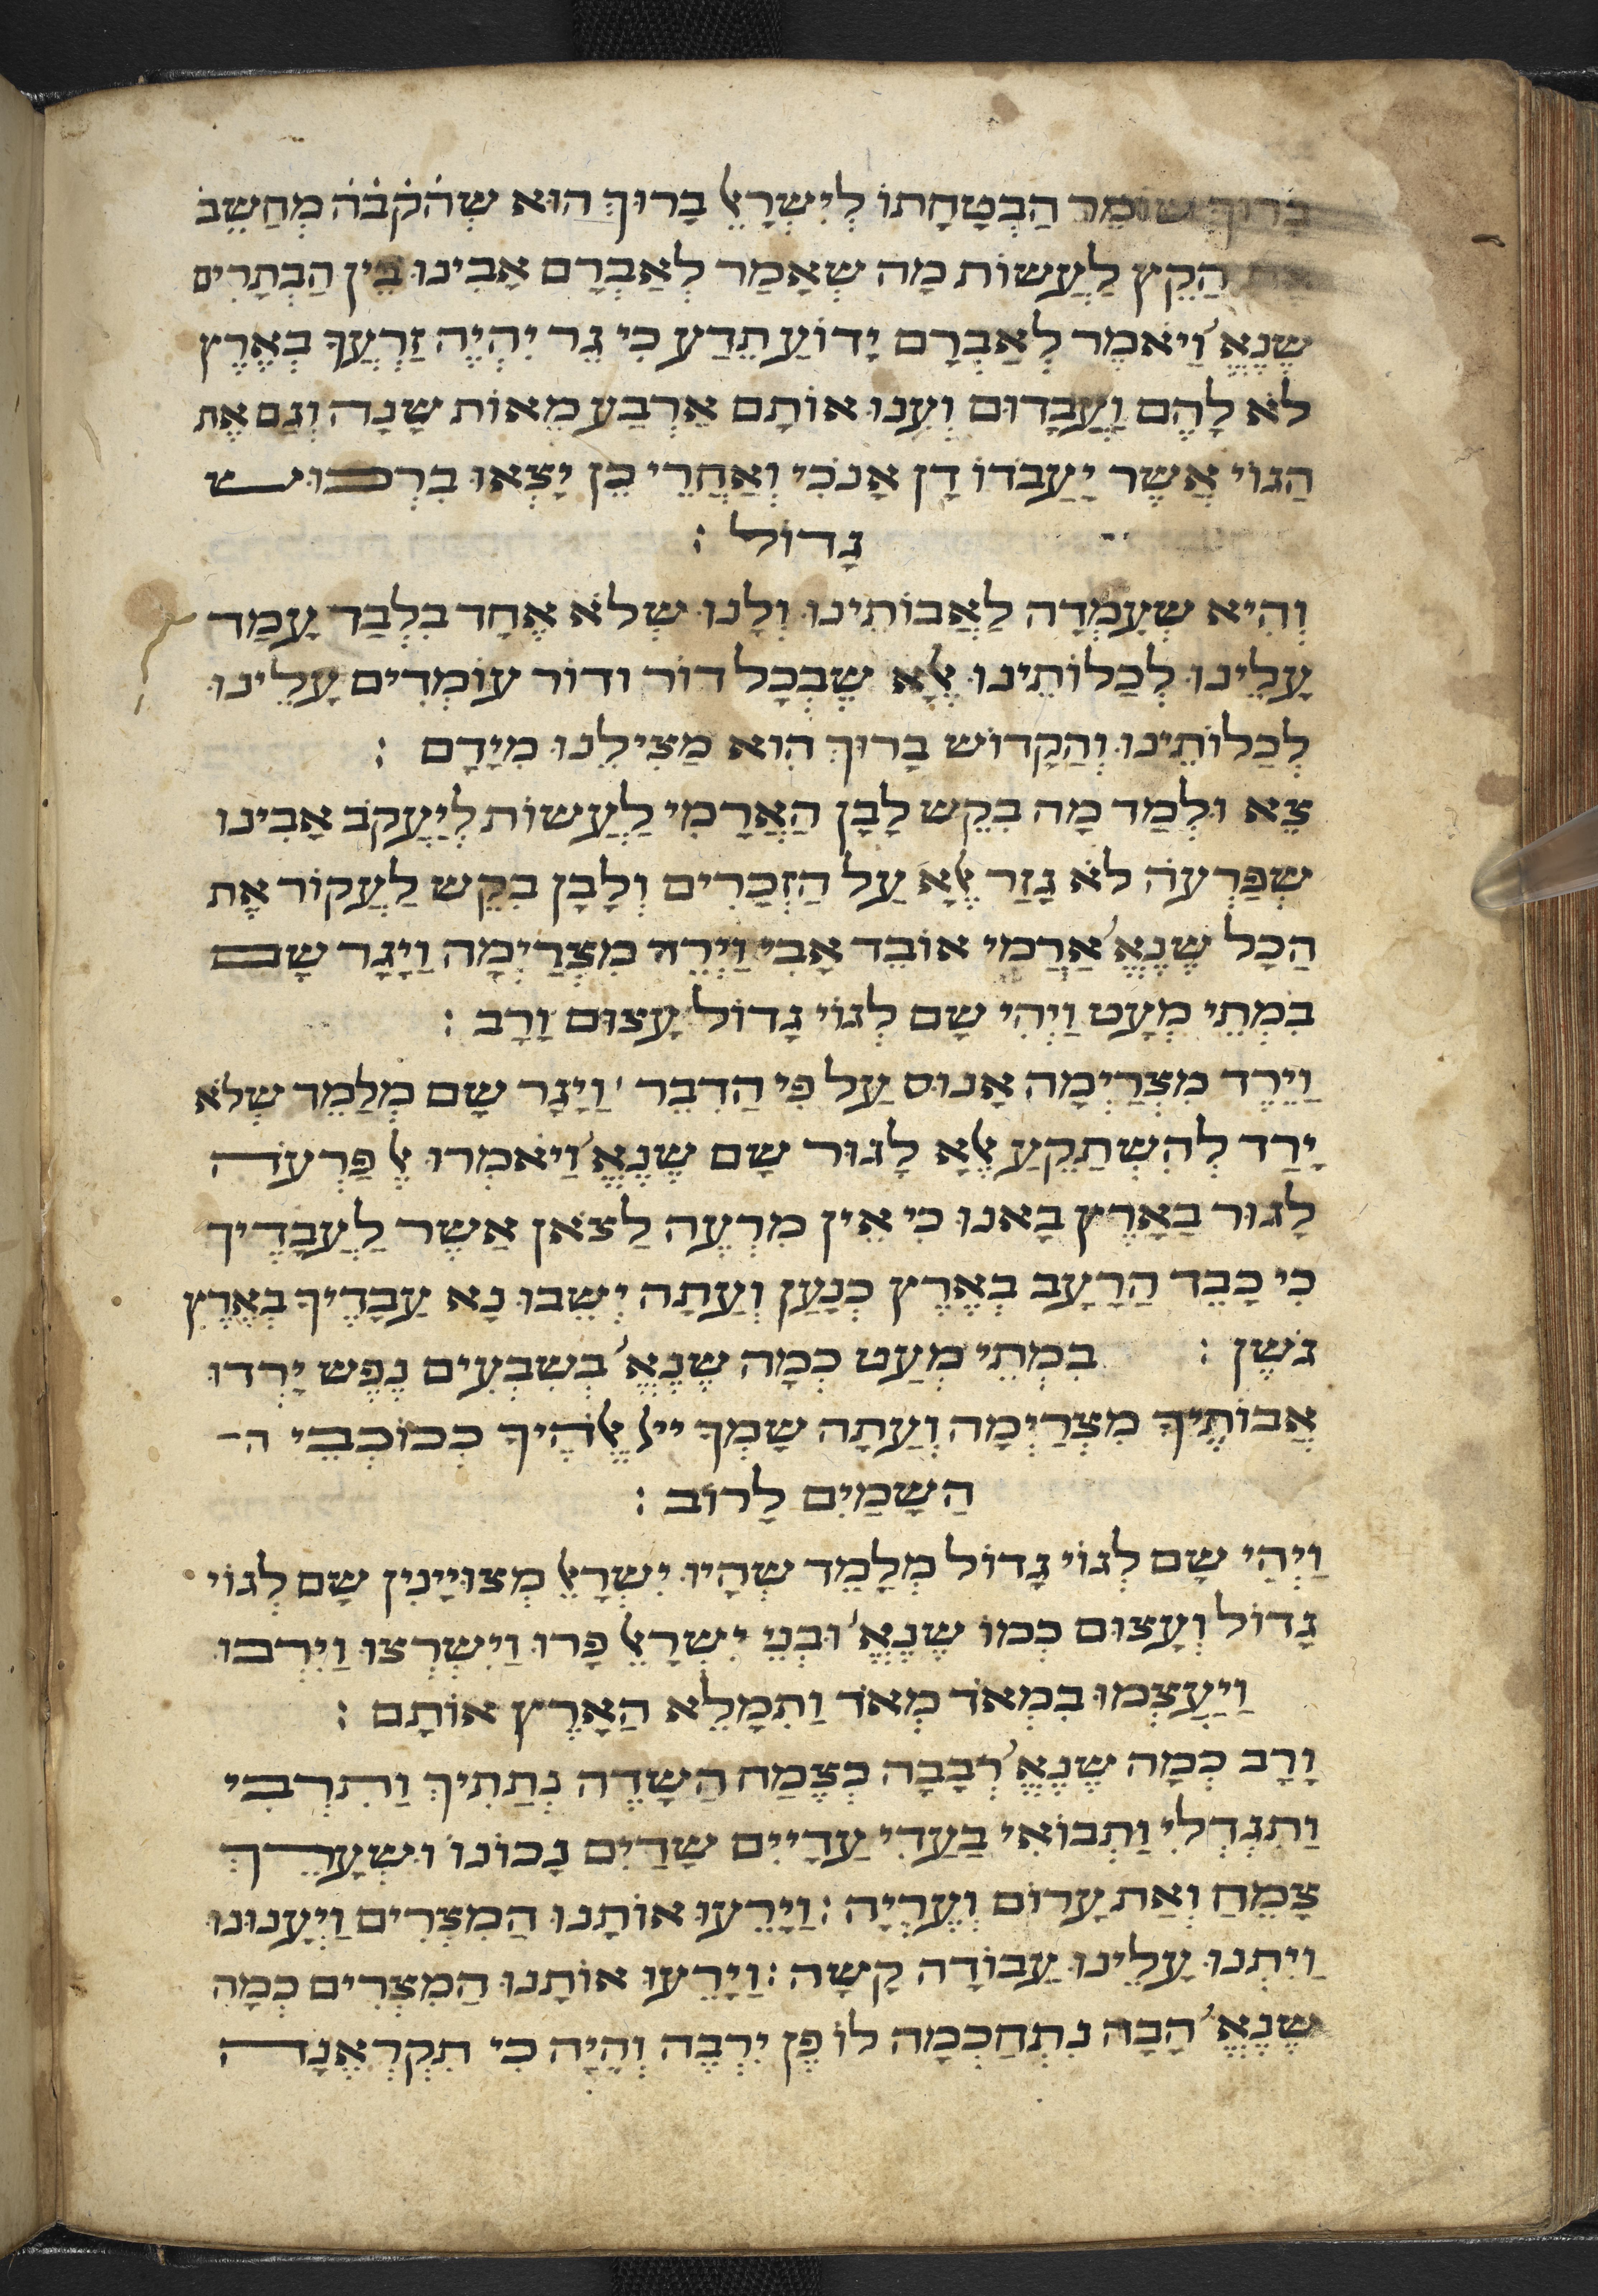 בָּרוּךְ שׁוֹמֵר הַבְטָחָתוֹ לְיִשְׂרָאֵל בָּרוּךְ הוּא שֶׁהַקָּבָּ֗ה֗ מְחַשֵּׁב
אֶת הַקֵץ לַעֲשׂוֹת מַה שְׁאָמַר לְאַבְרָם אָבִינוּ בֵּין הַבְּתָרִים
שֶׁנֶאֱ' וַיֹאמֶר לְאַבְרָם יָדוֹעַ תֵדַע כִּי גֵר יִהְיֶה זַרְעֲךָ בְּאֶרֶץ
לֹא לָהֶם וַעֲבָדוּם וְעִנוּ אוֹתָם אַרְבַּע מֵאוֹת שָׁנָה וְגַם אֶת
הַגוֹי אֲשֶׁר יַעֲבֹדוֹ דָן אָנֹכִי וְאַחֲרֵי כֵן יָצְאוּ בִּרְכוּשׁ
גָדוֹל :
וְהִיא שְׁעָמְדָה לַאֲבוֹתֵינוּ וְלָנוּ שְׁלֹא אֶחָד בִּלְבַד עָמַד
עָלֵינוּ לְכַלוֹתֵינוּ אֶלָא שֶׁבְּכָל דוֹר ודוֹר עוֹמְדִים עָלֵינוּ
לְכַלוֹתֵינוּ וְהַקָדוֹשׁ בָּרוּךְ הוּא מַצִילֵנוּ מִיָדָם :
צֵא וּלְמַד מָה בִּקֵשׁ לָבָן הַאֲרָמִי לַעֲשׂוֹת לְיַעֲקֹב אָבִינוּ
שְׁפַּרְעֹה לֹא גָזַר אֶלָא עַל הַזְכָרִים וְלָבָן בִּקֵשׁ לַעֲקוֹר אֶת
הַכָּל שֶׁנֶאֱ' אֲרַמִי אוֹבֵד אָבִי וַיֵרֶד מִצְרַיְמָה וַיָגָר שָׁם
בִּמְתֵי מְעָט וַיְהִי שָׁם לְגוֹי גָדוֹל עָצוּם וָרָב :
וַיֵרֶד מִצְרַיְמָה אָנוּס עַל פִּי הַדִבֵּר ' וַיָגָר שָׁם מְלַמֵד שְׁלֹא
יָרַד לְהִשְׁתַקֵעַ אֶלָא לָגוּר שָׁם שֶׁנֶאֱ' וַיֹאמְרוּ אֶל פַּרְעֹה
לָגוּר בָּאָרֶץ בָּאנוּ כִּי אֵין מִרְעֶה לַצֹאן אַשֶׁר לַעֲבָדֶיךָ
כִּי כָבֵד הַרָעָב בְּאֶרֶץ כְּנָעַן וְעַתָה יֵשְׁבוּ נָא עַבָדֶיךָ בְּאֶרֶץ
גֹשֶׁן : בִּמְתֵי מְעַט כְּמָה שֶׁנֶאֱ' בְּשִׁבְעִים נֶפֶשׁ יָרְדוּ
אֲבוֹתֶיךָ מִצְרַיְמָה וְעַתָה שָׂמְךָ ייל אֱלֹהֶיךָ כְּכוֹכְבֵי ה
הַשָׁמַיִם לָרוֹב :
וַיְהִי שָׁם לְגוֹי גָדוֹל מְלַמֵד שְׁהָיוּ יִשְׂרָאֵל מְצוּיָינִין שָׁם לְגוֹי
גָדוֹל וְעָצוּם כְּמוֹ שֶׁנֶאֱ' וּבְנֵי יִשְׂרָאֵל פָּרוּ וַיִשְׁרְצוּ וַיִרְבּוּ
וַיַעַצְמוּ בִּמְאֹד מְאֹד וַתִמָלֵא הַאָרֶץ אוֹתָם :
וָרָב כְּמָה שֶׁנֶאֱ' רְבָבָה כְּצֶמַח הַשָׂדֶה נְתַתִיךְ וַתִרְבִּי
וַתִגְדְלִי וַתְבוֹאִי בַּעַדִי עַדָיִים שָׁדַיִם נָכוֹנוֹ וּשְׂעָרֵךְ
צָמֵחַ וְאַת עָרוֹם וְעֶרְיָה : וַיָרֵעוּ אוֹתָנוּ הַמִצְרִים וַיְעָנוּנוּ
וַיִתְנוּ עָלֵינוּ עַבוֹדָה קָשָׁה : וַיָרֵעוּ אוֹתָנוּ הַמִצְרִים כְּמָה
שֶׁנֶאֱ' הָבָה נִתְחַכְּמָה לוֹ פֶּן יִרְבֶּה וְהָיָה כִּי תִקְרֶאנָה